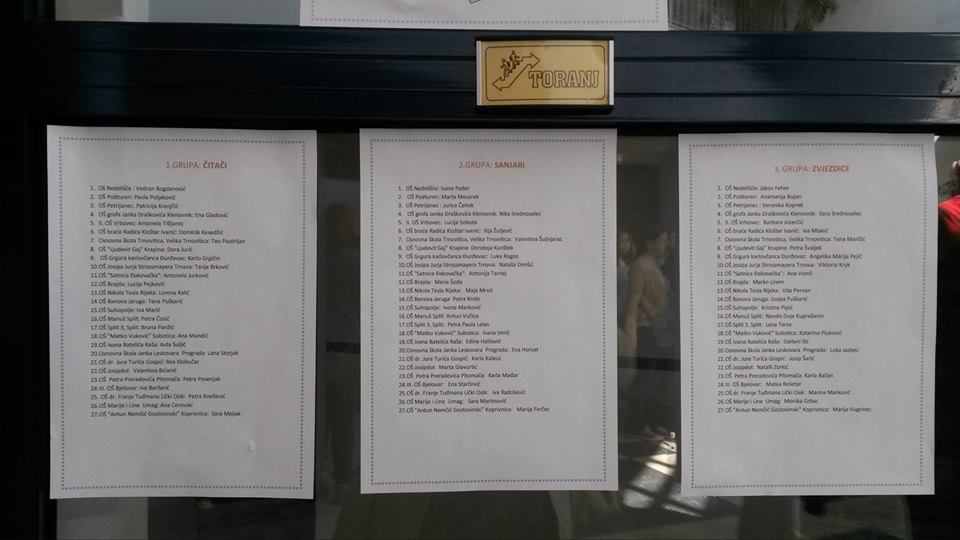 TORANJ
1.GRUPA: ČITAČI
1. OŠ Nedelišće : Vedran Bogdanović
2. OŠ Podturen: Paola Poljaković
3. OŠ Petrijanec: Patricija Kranjčić
4. OŠ grofa Janka Draškovića Klenovnik: Ena Gladović
5. II. OŠ Vrbovec: Antonela Tišljarec
6. OŠ braće Radića Kloštar Ivanić: Dominik Kesedžić
7. Osnovna škola Trnovitica, Velika Trnovitica: Teo Pazdrijan
8. OŠ "Ljudevit Gaj" Krapina: Dora Jurić
9. OŠ Grgura karlovčanca Đurđevac: Karlo Grgičin
10.OŠ Josipa Jurja Strossmayera Trnava: Tanja Brković
11.OŠ "Satnica Đakovačka": Antonela Jurković
12.OŠ Brajda: Lucija Pejković
13.OŠ Nikola Tesla Rijeka: Lorena Kalić
14.OŠ Banova Jaruga: Tena Puškarić
15.OŠ Suhopolje: Iva Marić
16.OŠ Manuš Split: Petra Ćosić
17.OŠ Split 3, Split: Bruna Panžić
18.OŠ "Matko Vuković" Subotica: Ana Mandić
19.OŠ Ivana Batelića Raša: Aida Suljić
20.Osnovna škola Janka Leskovara Pregrada: Lana Storjak
21.OŠ dr. Jure Turića Gospić: Rea Klobučar
22.OŠ Josipdol: Valentina Bićanić
23. OŠ Petra Preradovića Pitomača: Petra Posenjak
24.III. OŠ Bjelovar: Iva Barilarić
25. OŠ dr. Franje Tuđmana Lički Osik: Petra Knežević
26.OŠ Marije i Line Umag: Ana Cerovski
27.OŠ "Antun Nemčić Gostovinski" Koprivnica: Sara Maljak
2.GRUPA: SANJARI
1. OŠ Nedelišće: Ivana Foder
2. OŠ Podturen: Marta Mesarek
3. OŠ Petrijanec : Jurica Čehok
4. OŠ grofa Janka Draškovića Klenovnik: Nika Srednoselec
5. II. OŠ Vrbovec: Lucija Sobota
6. OŠ braće Radića Kloštar Ivanić: Ilija Žuljević
7. Osnovna škola Trnovitica, Velika Trnovitica: Valentina Šušnjarac
8. OŠ "Ljudevit Gaj" Krapina: Doroteja Kunštek
9. OŠ Grgura karlovčanca Đurđevac: Luka Rogoz
10.OŠ Josipa Jurja Strossmayera Trnava: Nataša Dimšić
11.OŠ "Satnica Đakovačka": Antonija Tarnaj
12.OŠ Brajda: Maria Šoda
13.OŠ Nikola Tesla Rijeka: Maja Mrsić
14.OŠ Banova Jaruga: Petra Krolo
15.OŠ Suhopolje: Ivona Marković
16.OŠ Manuš Split: Antun Vučica
17.OŠ Split 3, Split: Petra Paula Lelas
18.OŠ "Matko Vuković" Subotica: Ivana Imrić
19.OŠ Ivana Batelića Raša: Edina Halilović
20.Osnovna škola Janka Leskovara Pregrada: Eva Horvat
21.OŠ dr. Jure Turića Gospić: Karla Kalauz
22.OŠ Josipdol: Marta Glavurtić
23. OŠ Petra Preradovića Pitomača: Karla Mađar
24.III. OŠ Bjelovar: Ena Starčević
25.OŠ dr. Franje Tuđmana Lički Osik: Iva Radošević
26.OŠ Marije i Line Umag: Sara Martinović
27.OŠ "Antun Nemčić Gostovinski" Koprivnica: Marija Ferčec
3. GRUPA: ZVJEZDICE
1. OŠ Nedelišće: Jakov Feher
2. OŠ Podturen: Anamarija Bujan
3. OŠ Petrijanec : Veronika Koprek
4. OŠ grofa Janka Draškovića Klenovnik: Sara Srednoselec
5. II. OŠ Vrbovec: Barbara Jezerčić
6. OŠ braće Radića Kloštar Ivanić: Iva Mlakić
7. Osnovna škola Trnovitica, Velika Trnovitica: Tena Maričić
8. OŠ "Ljudevit Gaj" Krapina: Petra Švaljek
9. OŠ Grgura karlovčanca Đurđevac: Angelika Marija Pejić
10.OŠ Josipa Jurja Strossmayera Trnava: Viktoria Kryk
11.OŠ "Satnica Đakovačka": Ana Vomš
12.OŠ Brajda: Marko Linem
13.OŠ Nikola Tesla Rijeka: Vita Pervan
14.OŠ Banova Jaruga: Josipa Puškarić
15.OŠ Suhopolje: Kristina Pipić
16.OŠ Manuš Split: Nando Duje Kuprešanin
17.OŠ Split 3, Split: Lana Terze
18.OŠ "Matko Vuković" Subotica: Katarina Piuković
19.OŠ Ivana Batelića Raša: Stefani Ilić
20.Osnovna škola Janka Leskovara Pregrada: Luka Jazbec
21.OŠ dr. Jure Turića Gospić: Josip Šarić
22.OŠ Josipdol: Natali Zorkić
23.OŠ Petra Preradovića Pitomača: Karla Bačan
24.III. OŠ Bjelovar: Matea Rešetar
25.OŠ dr. Franje Tuđmana Lički Osik: Marina Marković
26.OŠ Marije i Line Umag: Monika Grbac
27.OŠ "Antun Nemčić Gostovinski" Koprivnica: Marija Vugrinec